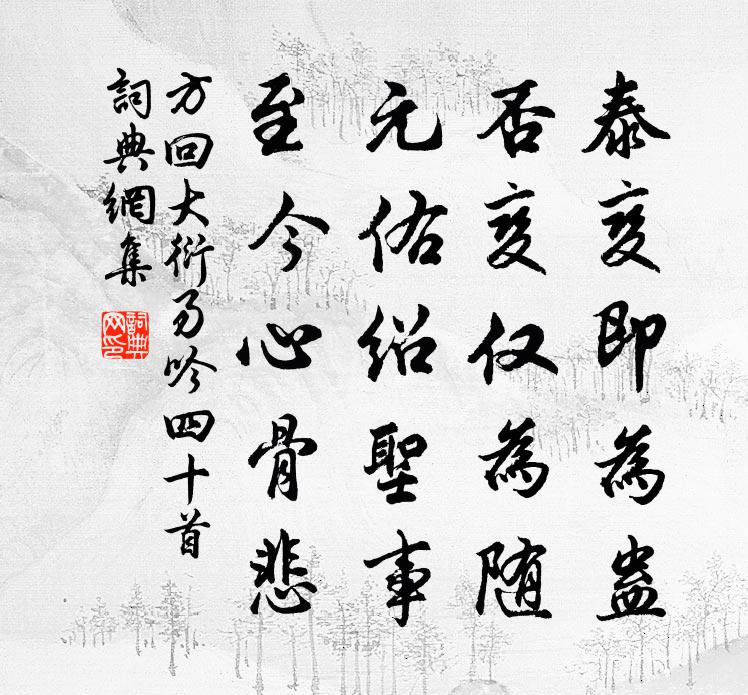 泰变即為蛊
否变仅為随
元佑绍聖事
至今心骨悲
方回大衍易吟四十首
詞典網集
詞典網印